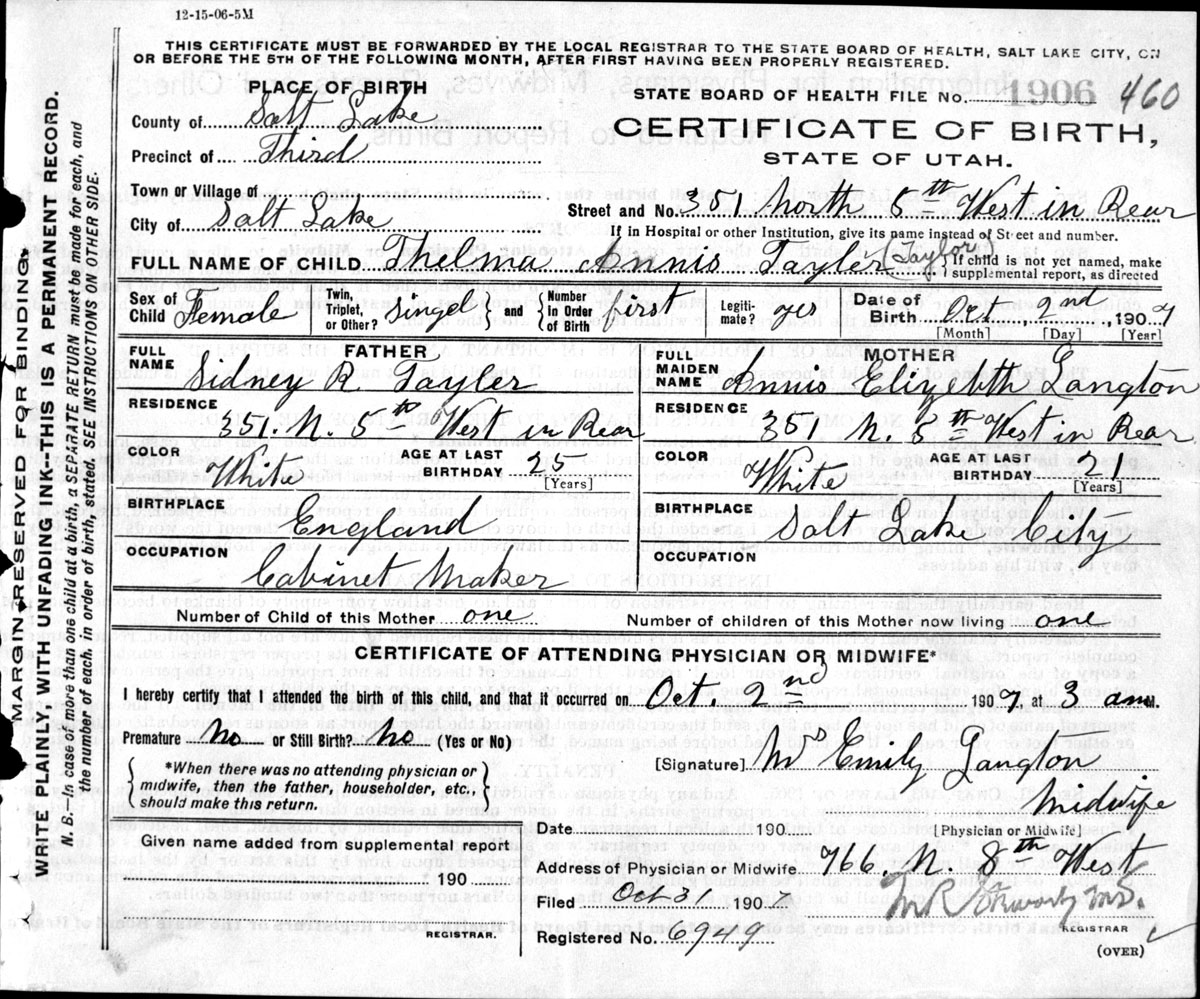 12-15-06-5M
THIS CERTIFICATE MUST BE FORWARDED BY THE LOCAL REGISTRAR TO THE STATE BOARD OF HEALTH, SALT LAKE CITY, ON
OR BEFORE THE 5TH OF THE FOLLOWING MONTH, AFTER FIRST HAVING BEEN PROPERLY REGISTERED.
PLACE OF BIRTH
County of Salt Lake
Precinct of Third
Town or Village of
City of Salt Lake
STATE BOARD OF HEALTH FILE No. 1906 460
CERTIFICATE OF BIRTH,
STATE OF UTAH.
Street and No. 351 North 5th West in Rear
If in Hospital or other Institution, give its name instead of Street and number.
FULL NAME OF CHILD Thelma Annis Tayler (Taylor) { If child is not yet named, make
supplemental report, as directed
Sex of Child Female { Twin, Triplet, or Other? singel } and { Number In Order of Birth first Legiti-mate? yes Date of Birth Oct, 2nd, 1907
[Month] [Day] [Year]
FATHER
FULL NAME Sidney R. Tayler
RESIDENCE
351. N. 5th West in Rear
COLOR White AGE AT LAST BIRTHDAY 25
[Years]
BIRTHPLACE
England
OCCUPATION
Cabinet Maker
MOTHER
FULL MAIDEN NAME Annis Elizebth Langton
RESIDENCE
351 N. 5th West in Rear
COLOR White AGE AT LAST BIRTHDAY 21
[Years]
BIRTHPLACE
Salt Lake City
OCCUPATION
Number of Child of this Mother one Number of children of this Mother now living one
CERTIFICATE OF ATTENDING PHYSICIAN OR MIDWIFE*
I hereby certify that I attended the birth of this child, and that it occurred on Oct. 2nd 1907, at 3 am.
Premature No or Still Birth? No (Yes or No)
{ *When there was no attending physician or
midwife, then the father, householder, etc.,
should make this return. }
[Signature] Mrs Emily Langton
Midwife
[Physician or Midwife]
Given name added from supplemental report
190
REGISTRAR.
Date 190
Address of Physician or Midwife 766. N. 8th West
Filed Oct 190
Registered No. 6949
REGISTRAR
(OVER)
MARGIN RESERVED FOR BINDING.
WRITE PLAINLY WITH UNFADING INK--THIS IS A PERMANENT RECORD.
N. B.—In case of more than one child at a birth, a SEPARATE RETURN must be made for each, and
the number of each, in order of birth, stated. SEE INSTRUCTIONS ON OTHER SIDE.